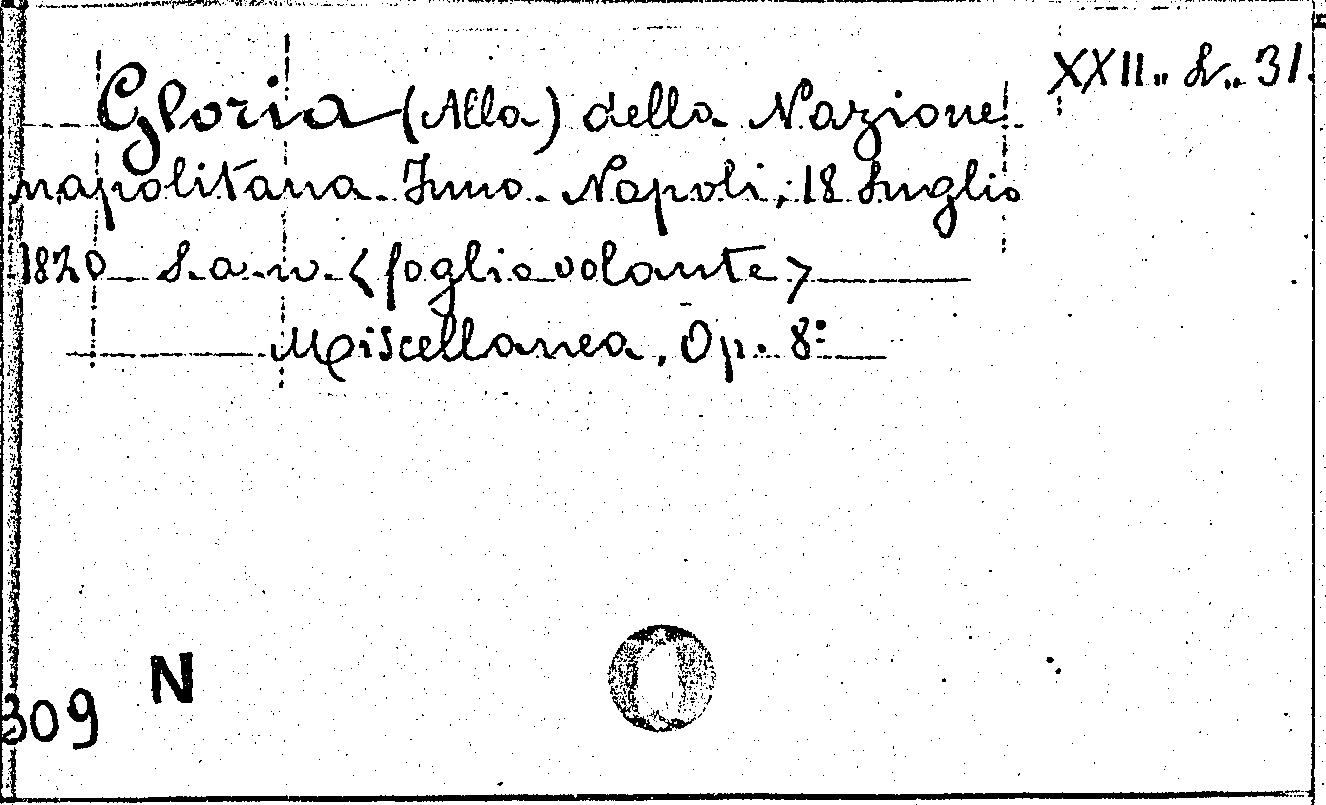 XXII.. L.. 31.
Gloria (Alla) della Nazione
napolitana. Inno. Napoli, 18 Luglio
1820 S. a. n. <foglio volante>
Miscellanea, Op. 8º
N
309